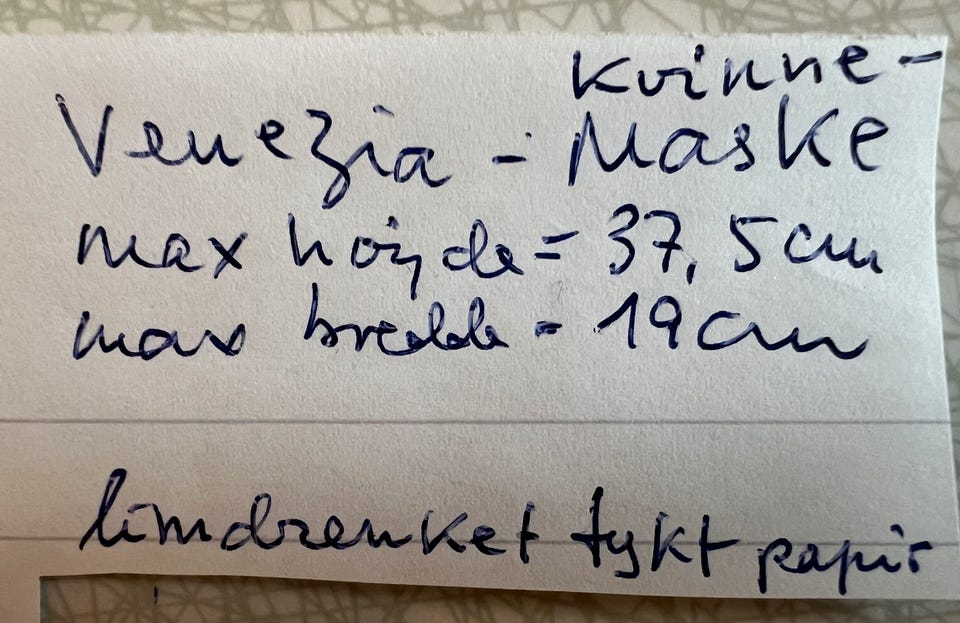 kvinne-
Venezia - Maske
max höyde = 37,5cm
max bredde = 19cm
limdrenket tykt papir